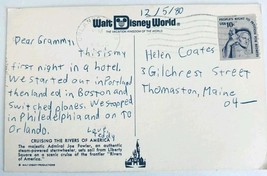 Walt Disney World®
THE VACATION KINGDOM OF THE WORLD
12/5/80
Dear Grammy,
This is my
first night in a hotel.
We started out in Portland
then landed in Boston and
switched planes. We stopped
in Philadelphia and on TO
Orlando.
Love,
CRUISING THE RIVERS OF AMERICA
The majestic Admiral Joe Fowler, an authentic
steam-powered sternwheeler, sets sail from Liberty
Square on a scenic cruise of the frontier "Rivers
of America".
Helen Coates
3 Gilchrest Street
Thomaston, Maine
04—
10c